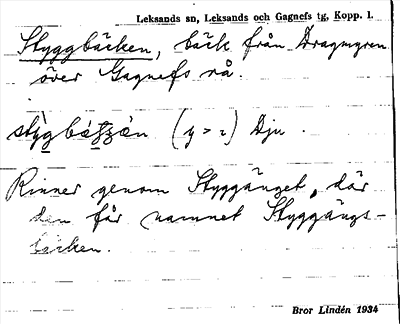 Leksands sn, Leksands och Gagnefs tg, Kopp. l.
Styggbäcken, bäck från Dragmyren
över Gagnefs rå.
(y > ı) Dju .
Rinner genom Styggänget, där
den får namnet Styggängs-
bäcken.
Bror Lindén 1934